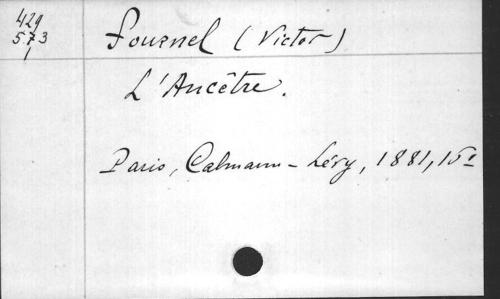 429
573
1
Fournel (Victor)
L'Ancêtre.
Paris, Calmann-Lévy, 1881, 16º